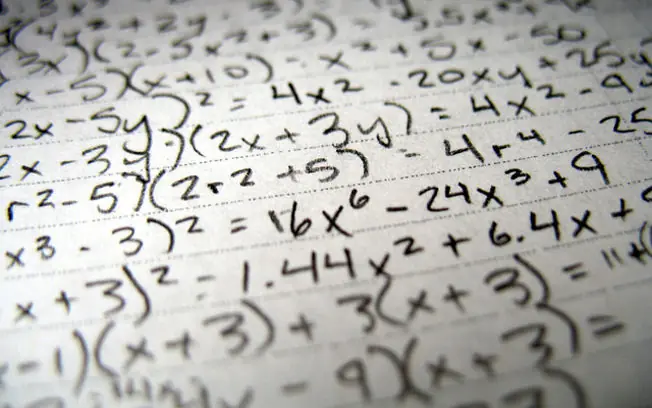 3x)(2-5x²+3)
x-5)(x+10) - x² + 5x - 50
2x - 5y)² = 4x² - 20xy + 25y
2x - 3y)(2x + 3y) = 4x² - 9y
r² - 5)(2r² + 5) = 4r⁴ - 25
x³ - 3)² = 16x⁶ - 24x³ + 9
x + 3)² = 1.44x² + 6.4x +
-1)(x + 3) + 3(x + 3) =
x - 9)(x + 3) =